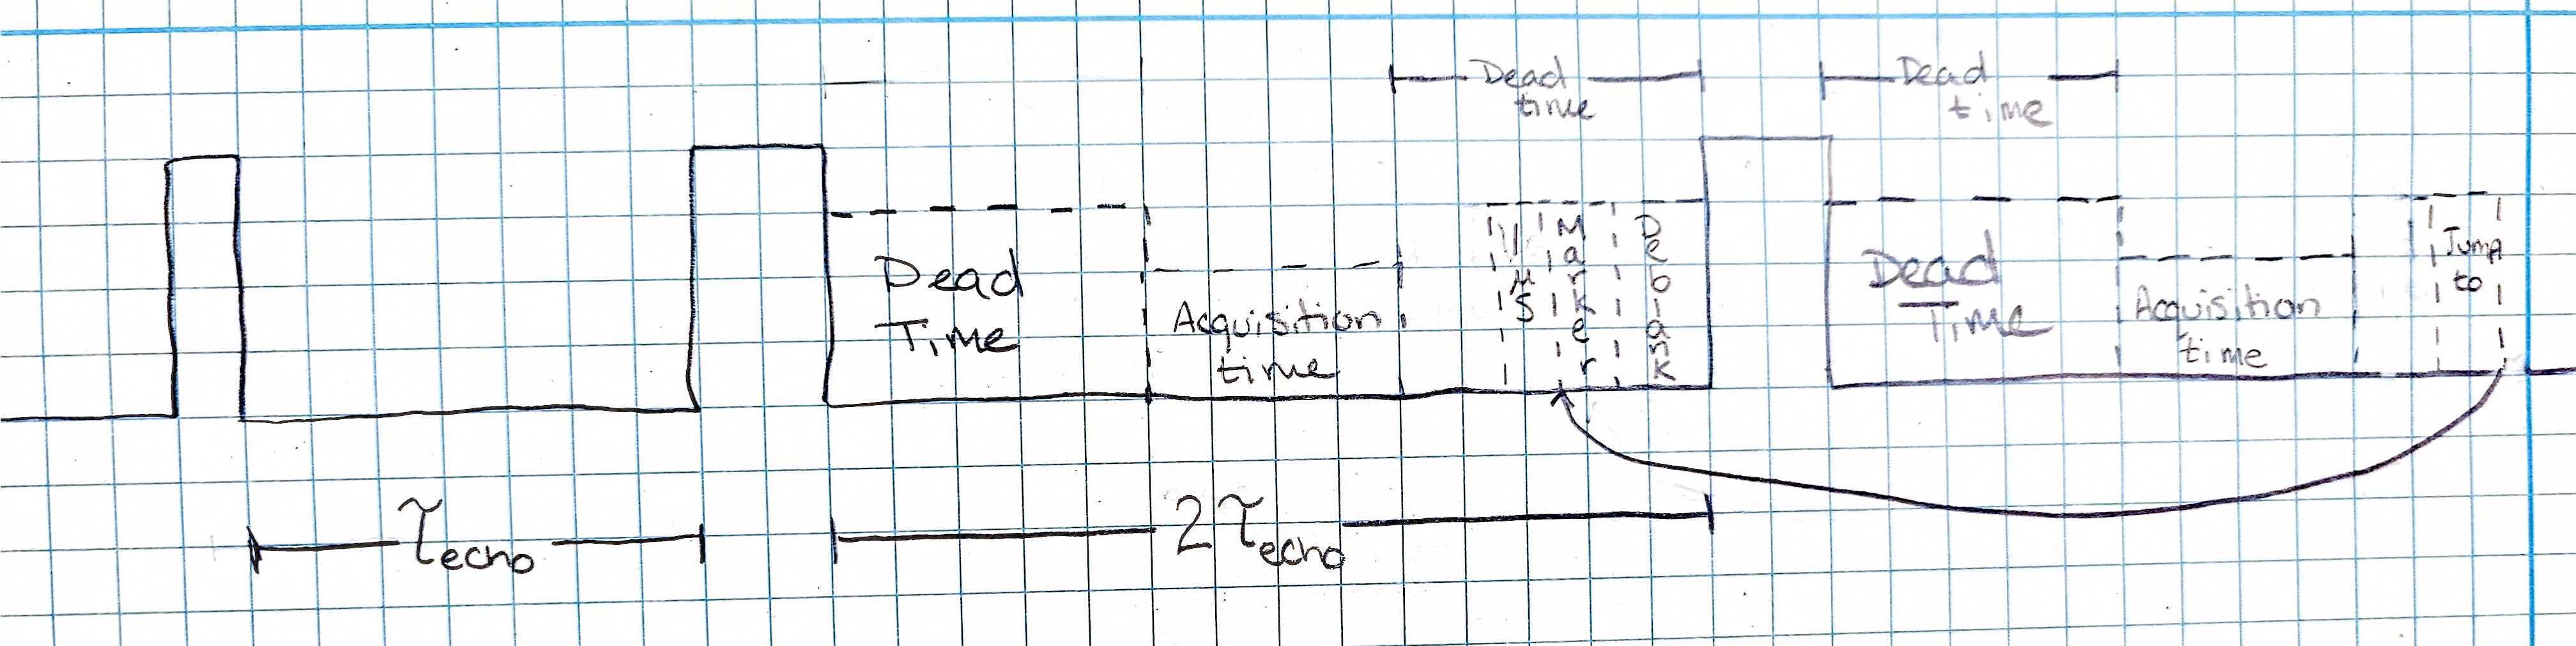 Dead
time
Dead
time
Dead
Time
Acquisition
time
μs
Marker
Deblank
Dead
Time
Acquisition
time
Jump
to
τecho
2τecho